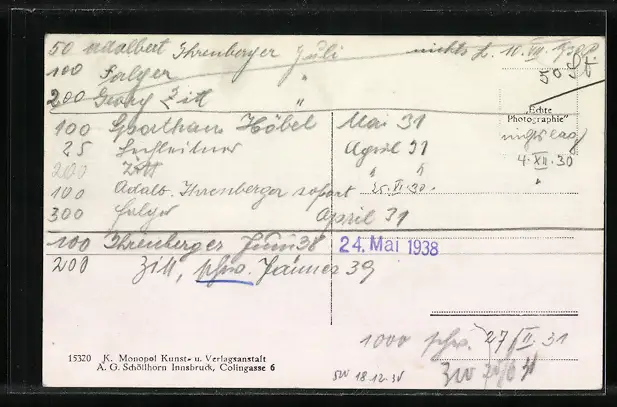 50 Adalbert Ihrenberger Juli nichts f. 10. VII. 1930
100 Falger "
50 St
200 Georg Zitt "
"Echte
Photographie"
100 Sporthaus Höbel Mai 31
25 Lechleitner April 31
4. XII. 30
200 Zitt " "
"
100 Adalb. Ihrenberger sofort 25. VI. 30.
300 Falger April 31
100 Ihrenberger Juni 38 24. Mai 1938
200 Zitt, schw. Jänner 39
1000 schw. 27/II. 31
15320 K. Monopol Kunst- u. Verlagsanstalt
A. G. Schöllhorn Innsbruck, Colingasse 6